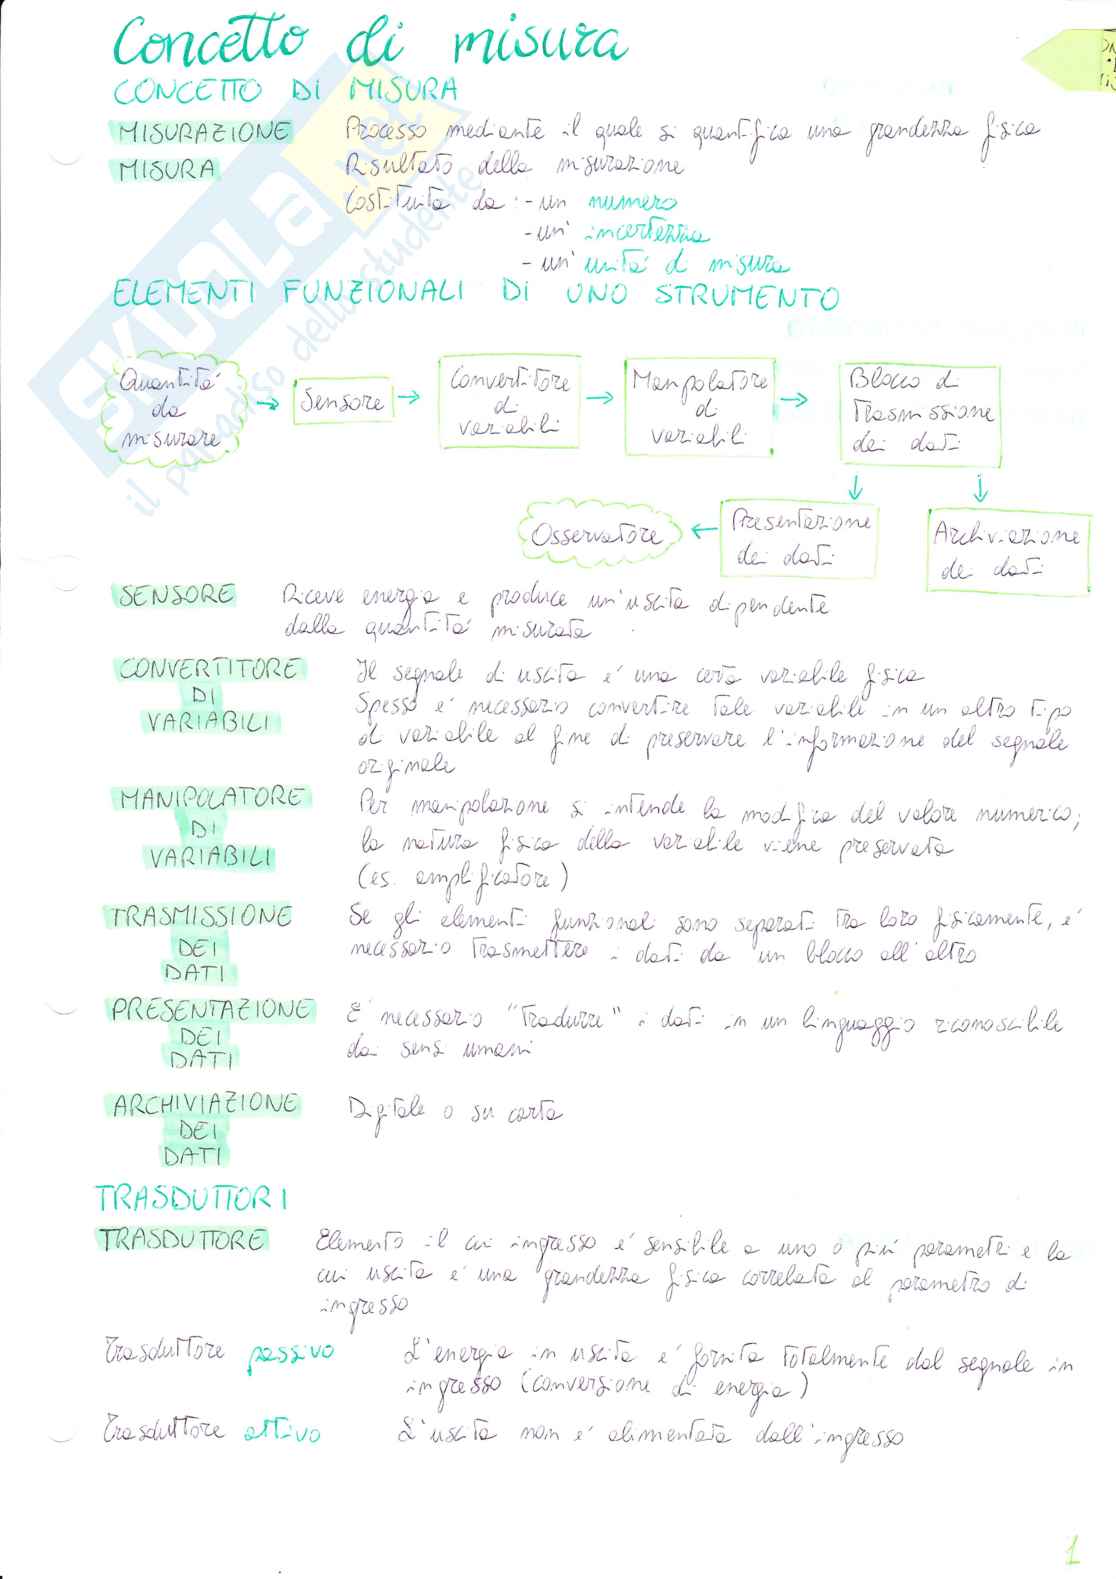 Concetto di misura
CONCETTO DI MISURA
MISURAZIONE Processo mediante il quale si quantifica una grandezza fisica
MISURA Risultato della misurazione
Costituita da: - un numero
- un' incertezza
- un' unità di misura
ELEMENTI FUNZIONALI DI UNO STRUMENTO
Quantità
da
misurare
Sensore
Convertitore
di
variabili
Manipolatore
di
variabili
Blocco di
trasmissione
dei dati
Osservatore
Presentazione
dei dati
Archiviazione
dei dati
SENSORE Riceve energia e produce un'uscita dipendente
dalla quantità misurata
CONVERTITORE
DI
VARIABILI
Il segnale di uscita è una certa variabile fisica
Spesso è necessario convertire tale variabili in un altro tipo
di variabile al fine di preservare l'informazione del segnale
originale
MANIPOLATORE
DI
VARIABILI
Per manipolazione si intende la modifica del valore numerico;
la natura fisica della variabile viene preservata
(es. amplificatore)
TRASMISSIONE
DEI
DATI
Se gli elementi funzionali sono separati tra loro fisicamente, è
necessario trasmettere i dati da un blocco all'altro
PRESENTAZIONE
DEI
DATI
E' necessario "tradurre" i dati in un linguaggio riconoscibile
dai sensi umani
ARCHIVIAZIONE
DEI
DATI
Digitale o su carta
TRASDUTTORI
TRASDUTTORE Elemento il cui ingresso è sensibile a uno o più parametri e la
cui uscita è una grandezza fisica correlata al parametro di
ingresso
Trasduttore passivo L'energia in uscita è fornita totalmente dal segnale in
ingresso (conversione di energia)
Trasduttore attivo L'uscita non è alimentata dall'ingresso
1
SKUOLA.net
il paradiso dello studente